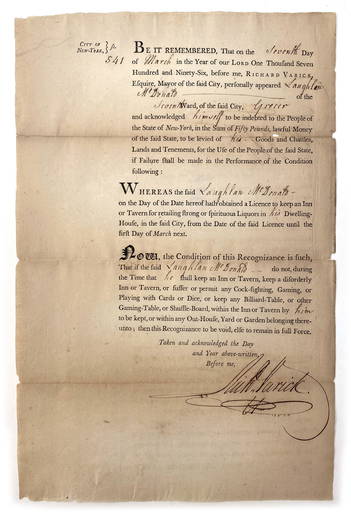 CITY OF
NEW-YORK, } ss.
541
BE IT REMEMBERED, That on the Seventh Day
of March in the Year of our LORD One Thousand Seven
Hundred and Ninety-Six, before me, RICHARD VARICK,
Esquire, Mayor of the said City, personally appeared Laughlan
McDonald of the
Seventh Ward, of the said City, Grocer
and acknowledged himself to be indebted to the People of
the State of New-York, in the Sum of Fifty Pounds, lawful Money
of the said State, to be levied of his Goods and Chattles,
Lands and Tenements, for the Use of the People of the said State,
if Failure shall be made in the Performance of the Condition
following :
WHEREAS the said Laughlan McDonald
on the Day of the Date hereof hath obtained a Licence to keep an Inn
or Tavern for retailing strong or spirituous Liquors in his Dwelling-
House, in the said City, from the Date of the said Licence until the
first Day of March next.
NOW, the Condition of this Recognizance is such,
That if the said Laughlan McDonald do not, during
the Time that he shall keep an Inn or Tavern, keep a disorderly
Inn or Tavern, or suffer or permit any Cock-fighting, Gaming, or
Playing with Cards or Dice, or keep any Billiard-Table, or other
Gaming-Table, or Shuffle-Board, within the Inn or Tavern by him
to be kept, or within any Out-House, Yard or Garden belonging there-
unto; then this Recognizance to be void, else to remain in full Force.
Taken and acknowledged the Day
and Year above-written,
Before me,
Richd. Varick